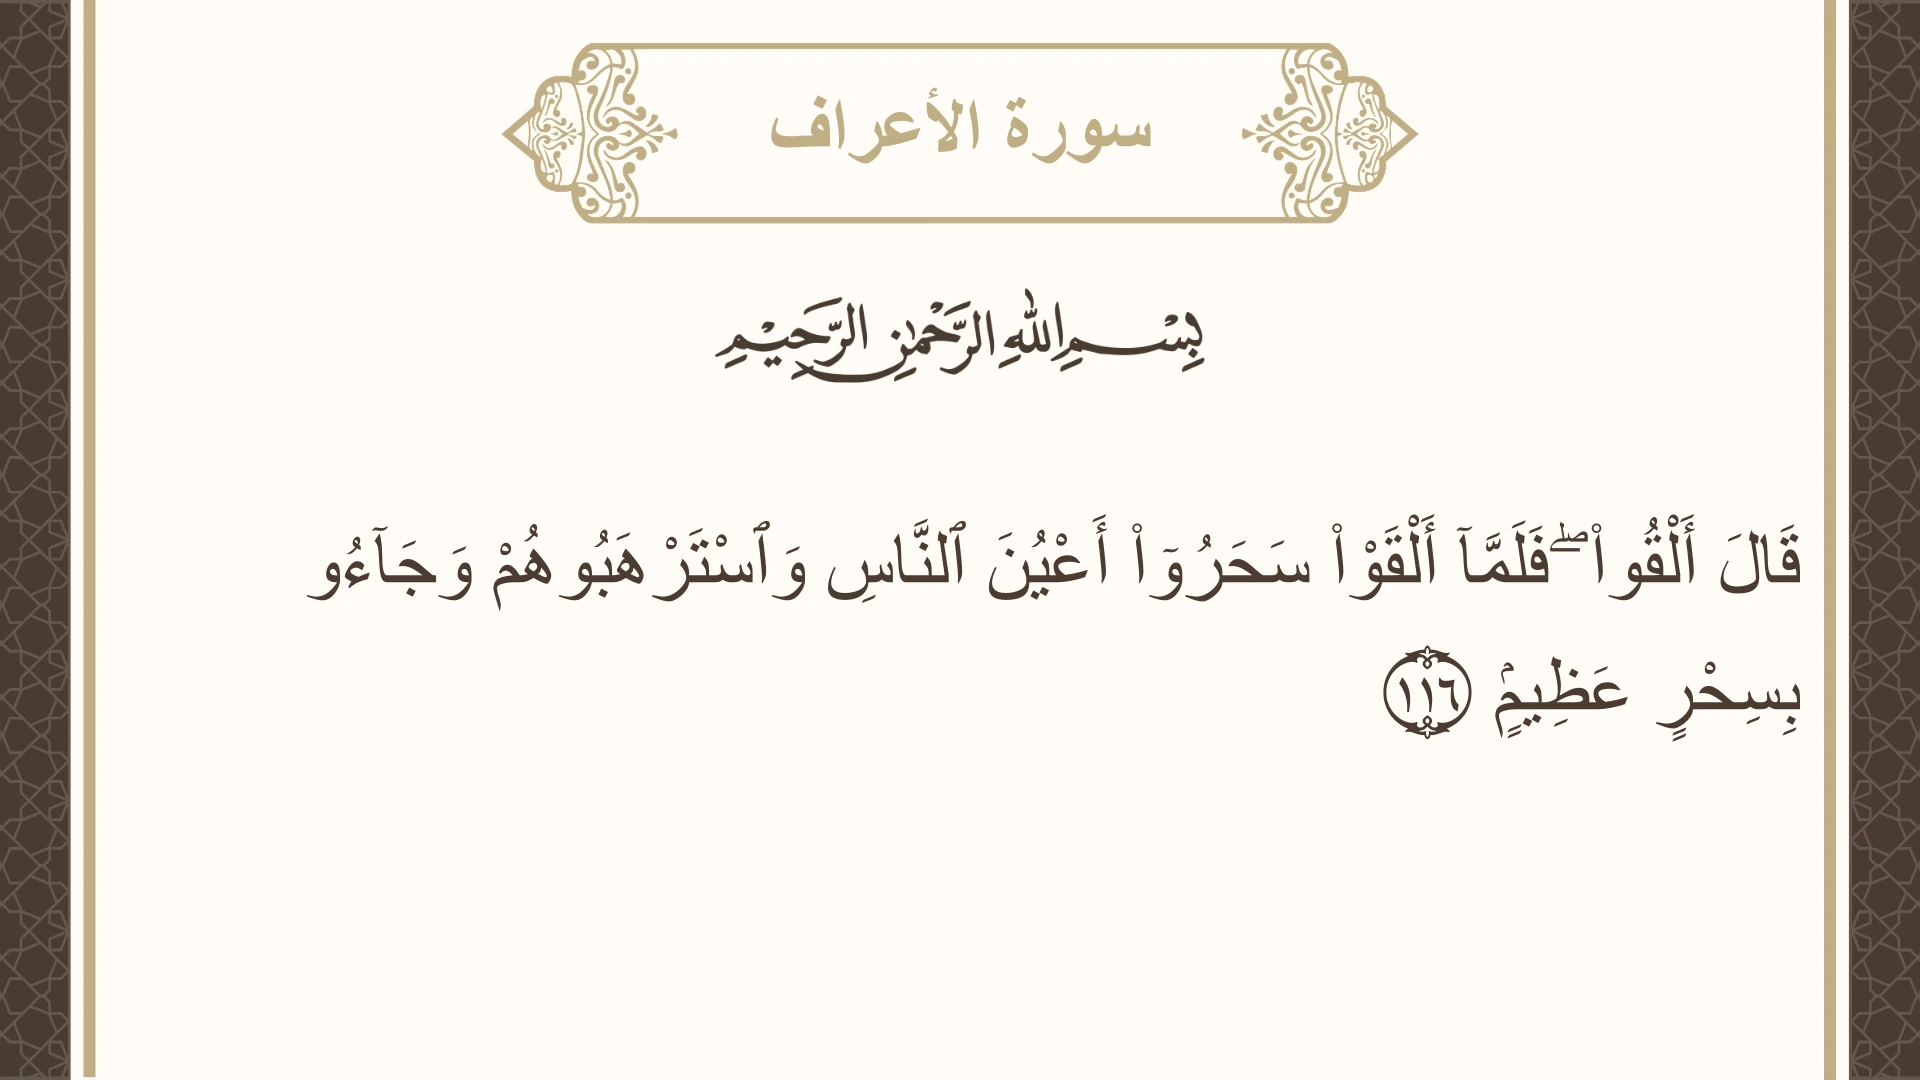 سورة الأعراف
بِسْمِ اللهِ الرَّحْمٰنِ الرَّحِيْمِ
قَالَ أَلْقُوا۟ ۖ فَلَمَّآ أَلْقَوْا۟ سَحَرُوٓا۟ أَعْيُنَ ٱلنَّاسِ وَٱسْتَرْهَبُوهُمْ وَجَآءُو
بِسِحْرٍ عَظِيمٍۢ ١١٦